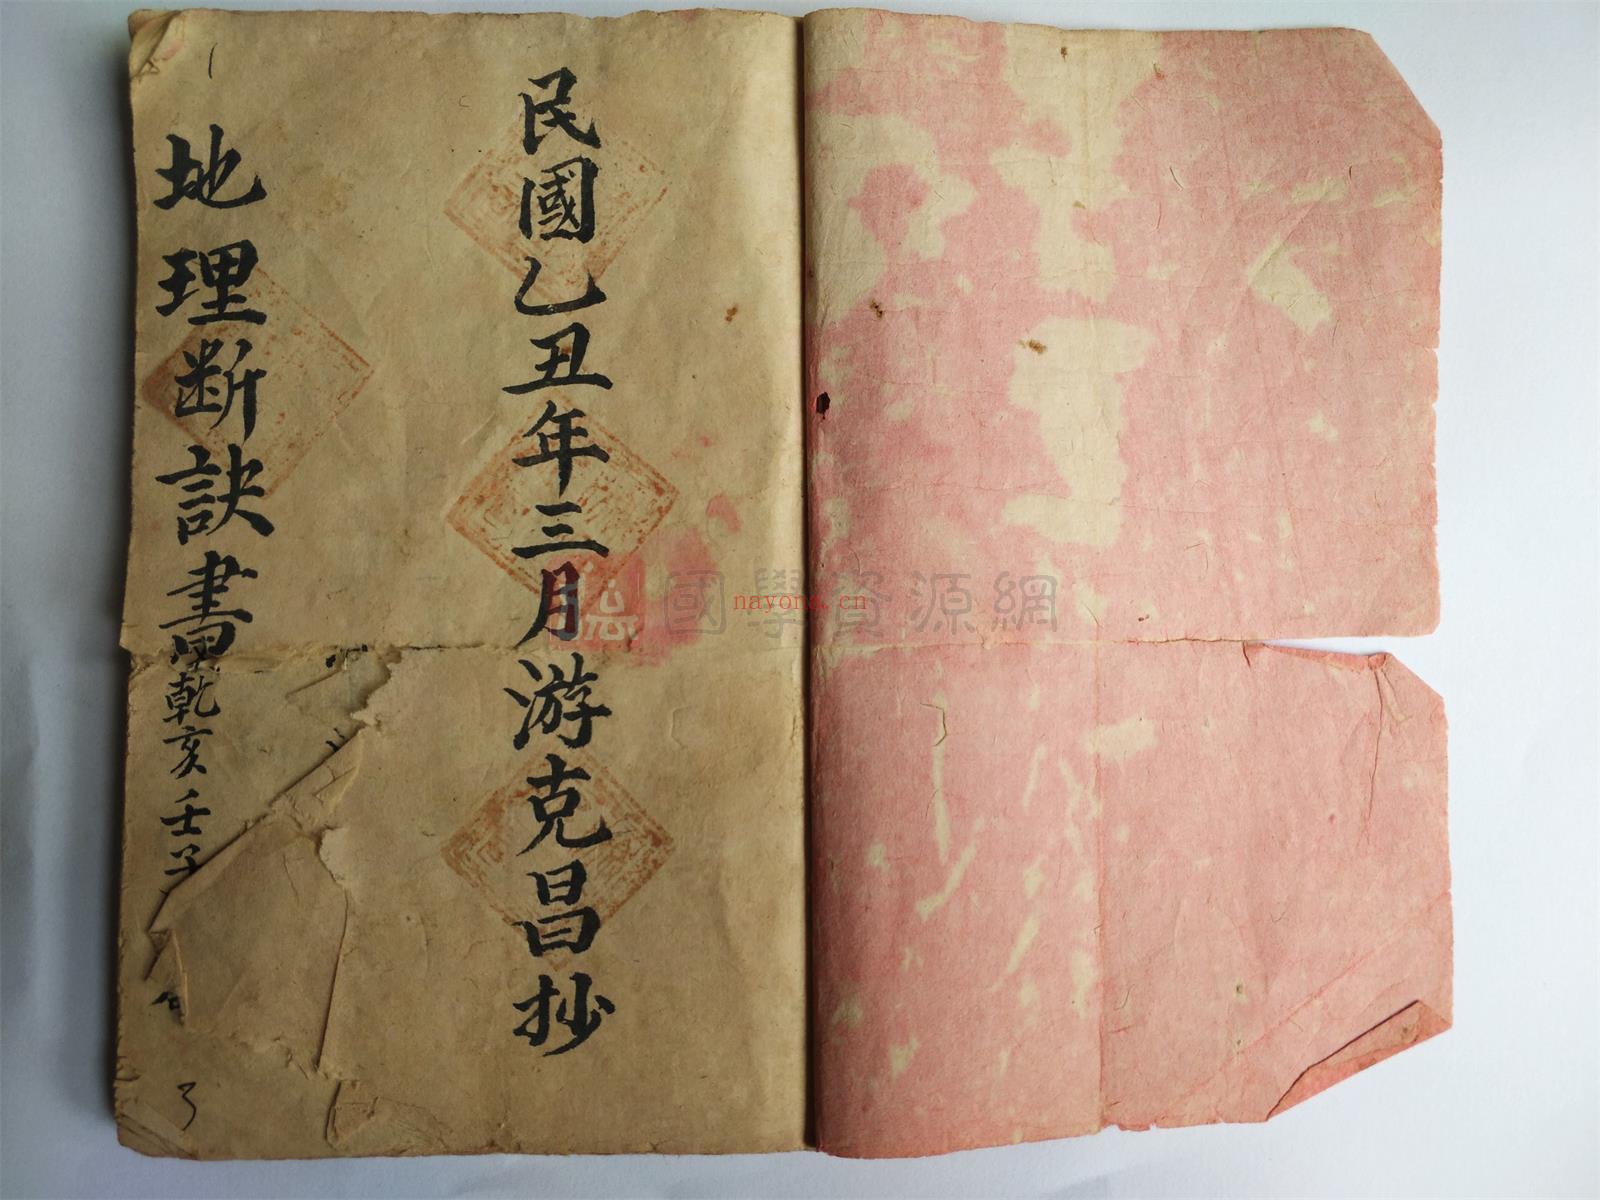 民國乙丑年三月游克昌抄
地理断訣書乾亥壬子
國學資源網
nayona.cn